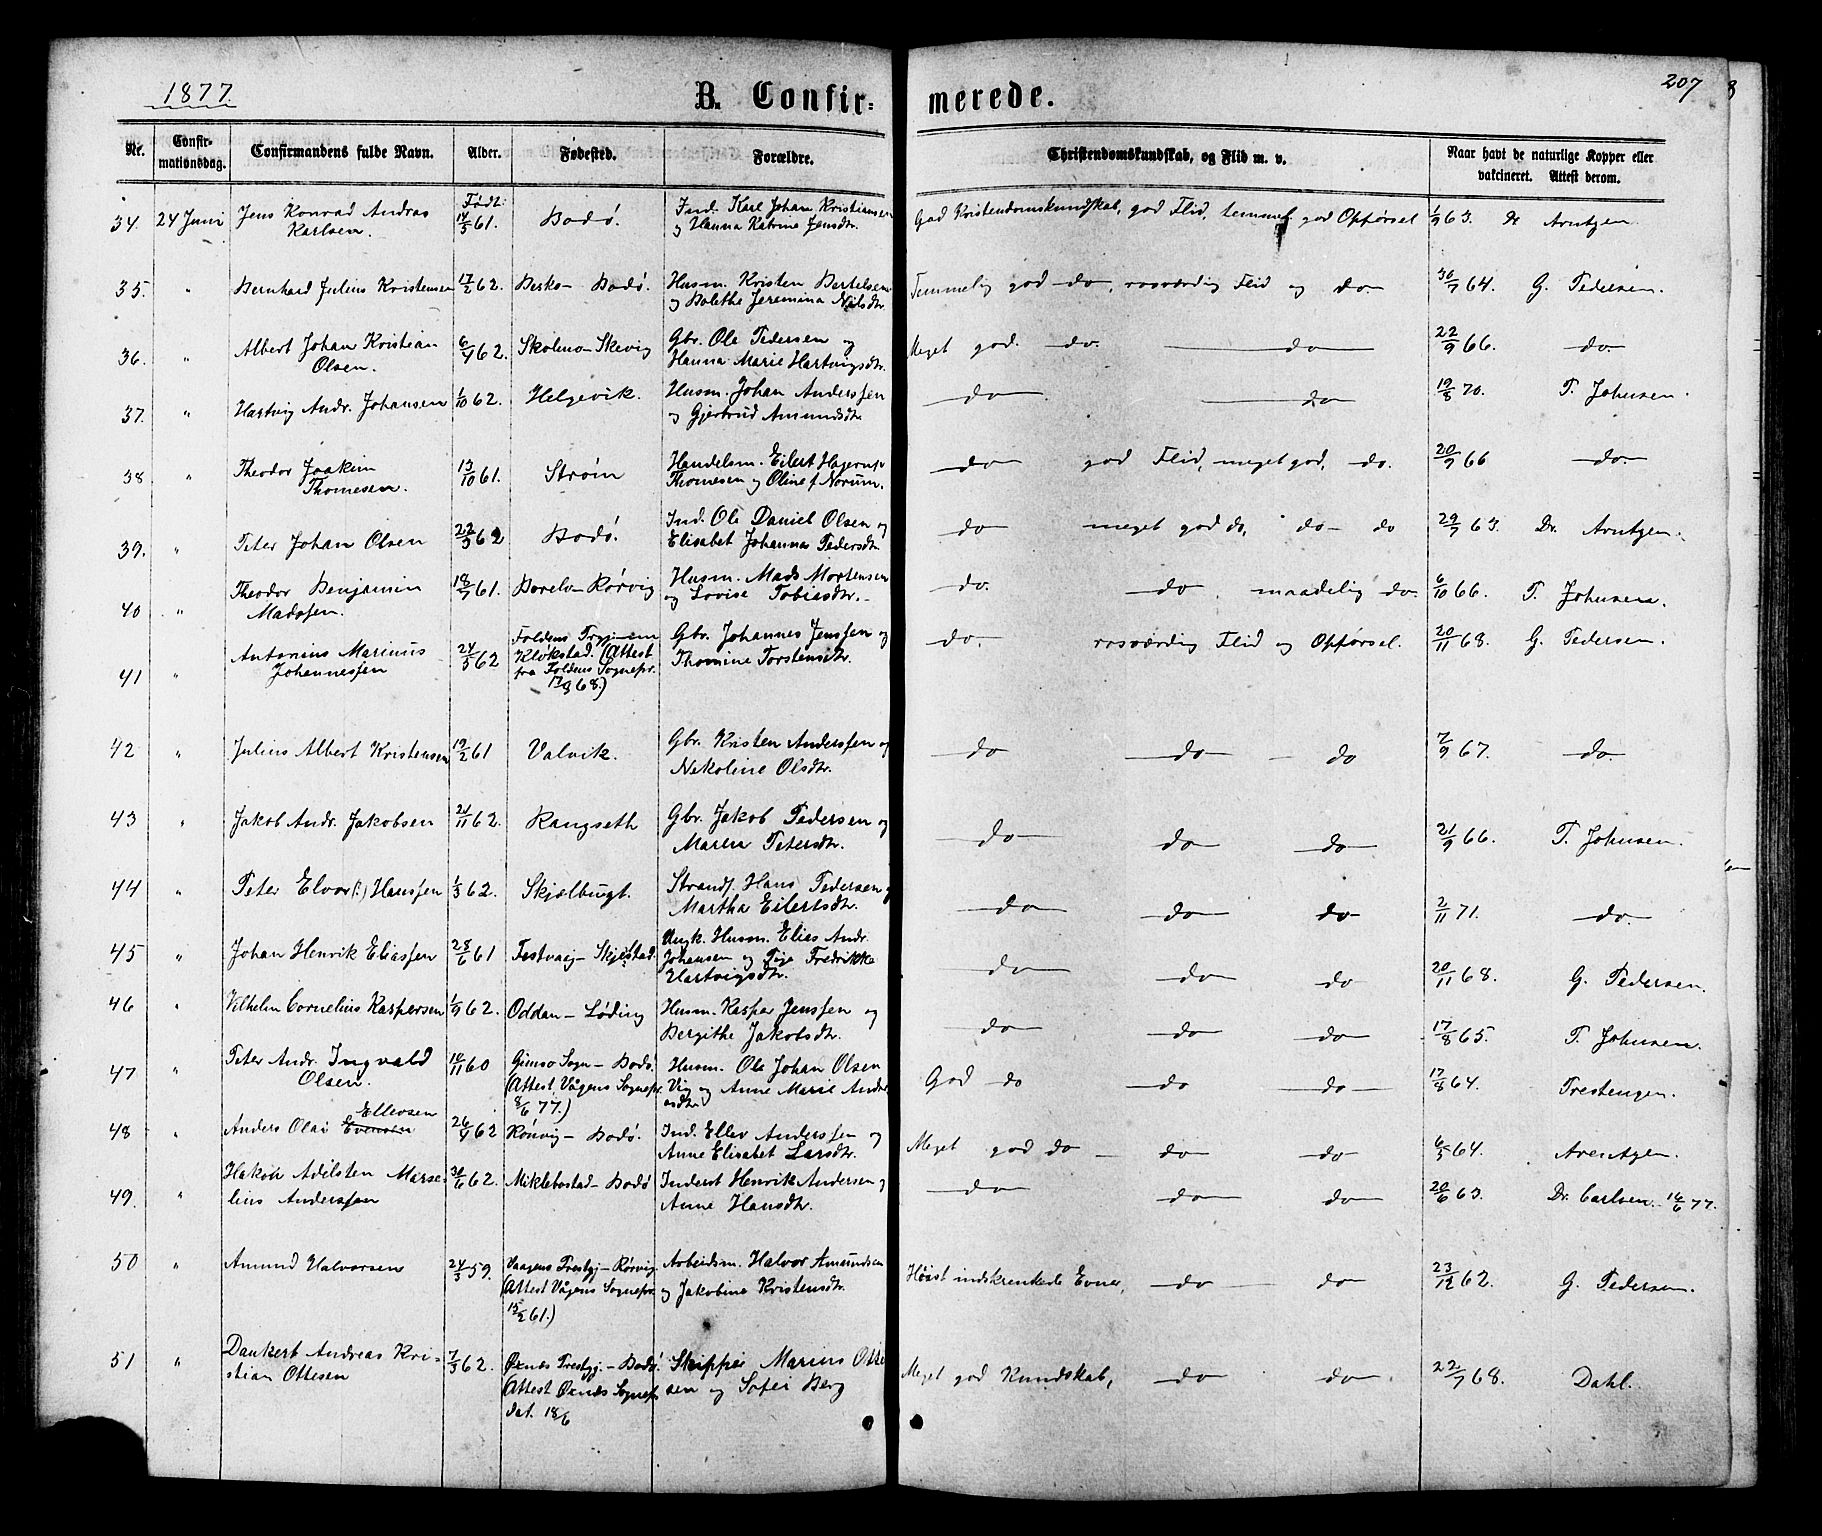 1877.
B. Confir-
merede.
207
8
Nr.
Confir-
mationsdag.
Confirmandens fulde Navn.
Alder.
Fødested.
Forældre.
Christendomskundskab, og Flid m. v.
Naar havt de naturlige Kopper eller
vakcineret. Attest derom.
Født:
34. 24 Juni Jens Konrad Andras 14/5 61. Bodø. Ind. Karl Johan Kristiansen God Kristendomskundskab, god Flid, temmel. god Opførsel 1/9 63. Dr Arntzen.
Karlsen. og Hanna Katrine Jensdtr.
35. " Bernhard Julius Kristensen 17/2 62. Bodø. Husm. Kristen Bertelsen Temmelig god do, rosværdig Flid og do. 30/7 64. G. Pedersen.
og Bolethe Jeremina Nilsdtr.
36. " Albert Johan Kristian 6/4 62. Gbr. Ole Pedersen og Meget god. do. do 22/9 66. do.
Olsen. Hanna Marie Hartvigsdtr.
37. " Hartvig Andr. Johansen 1/10 62. Helgevik. Husm. Johan Anderssen do do 19/8 70. P. Johnsen.
og Gjertrud Amundsdtr.
38 " Theodor Joakim 13/10 61. Strøm Handelsm. Eilert Hagerup do god Flid, meget god, do. 20/9 66 do.
Thomesen. Thomesen og Oline f. Norum.
39. " Peter Johan Olsen 22/3 62 Bodø. Ind. Ole Daniel Olsen og do meget god do, do do 29/7 63. Dr. Arntzen.
Elisabet Johanna Pedersdtr.
40 " Theodor Benjamin 18/7 61. Husm. Mads Mortensen do. do maadelig do. 6/10 66. P. Johnsen.
Madssen. og Lovise Tobiasdtr.
41 " Antonius Marinus 24/5 62 Foldens Prgj. Gbr. Johannes Jenssen og do. rosværdig Flid og Opførsel. 20/11 68. G. Pedersen.
Johannessen Kløkstad. (Attest Thomine Torstensdtr.
fra Foldens Sognepr.
68.)
42 " Julius Albert Kristensen 19/2 61 Valvik. Gbr. Kristen Anderssen og do do do 7/9 67. do.
Nikoline Olsdtr.
43 " Jakob Andr. Jakobsen 21/11 62. Rangseth Gbr. Jakob Pedersen og do do do 21/9 66. P. Johnsen.
Maren Petersdtr.
44 " Peter Elvor (!) Hanssen 1/3 62. Skjælbugt. Strands. Hans Pedersen og do do do 2/11 71. do
Martha Eilertsdtr.
45 " Johan Henrik Eliassen 28/6 61 Festvaag - Skjelstad. Ungk. Husm. Elias Andr. do do do 20/11 68. G. Pedersen.
Johansen og Fredrikke
Hartvigsdtr.
46 " Vilhelm Cornelius Kaspersen 1/9 62. Oddan - Løding Husm. Kasper Jenssen og do do do 17/8 65. P. Johnsen.
Bergithe Jakobsdtr.
47 " Peter Andr. Ingvald 16/11 60 Gimsø Sogn - Bodø. Husm. Ole Johan Olsen God do do do 17/8 64. Prestengen.
Olsen. (Attest Vågens Sognepr. Vig og Anne Marie Andre
8/6 77.) asdtr.
Ellevsen
48 " Anders Olai Evensen 26/4 62 Rønvig - Bodø. Ind. Ellev Anderssen og Meget god do do do 6/5 64. Arentzen.
Anne Elisabet Larsdtr.
49. " Hakon Adelsten Marse- 30/6 62. Miklebostad - Bodø Inderst Henrik Andersen og do do do 20/6 63. Dr. Carlsen. 16/6 77.
lius Anderssen Anne Hansdtr.
50 " Amund Halvorsen 24/3 59. Vaagens Prestgj. - Rørvig Arbeidsm. Halvor Amundsen Høist indskrenkede Evner, do do 23/12 62. G. Pedersen.
(Attest Vågens Sognepr. og Jakobine Kristensdtr.
15/2 61.)
51 " Dankert Andreas Kri- 7/3 62. Øxnes Prestgj. - Bodø. Skipper Marius Otte Meget god Kundskab, do do. 22/7 68. Dahl.
stian Ottesen (Attest Øxnes Sognepr. sen og Sofie Berg
dat. 18/6